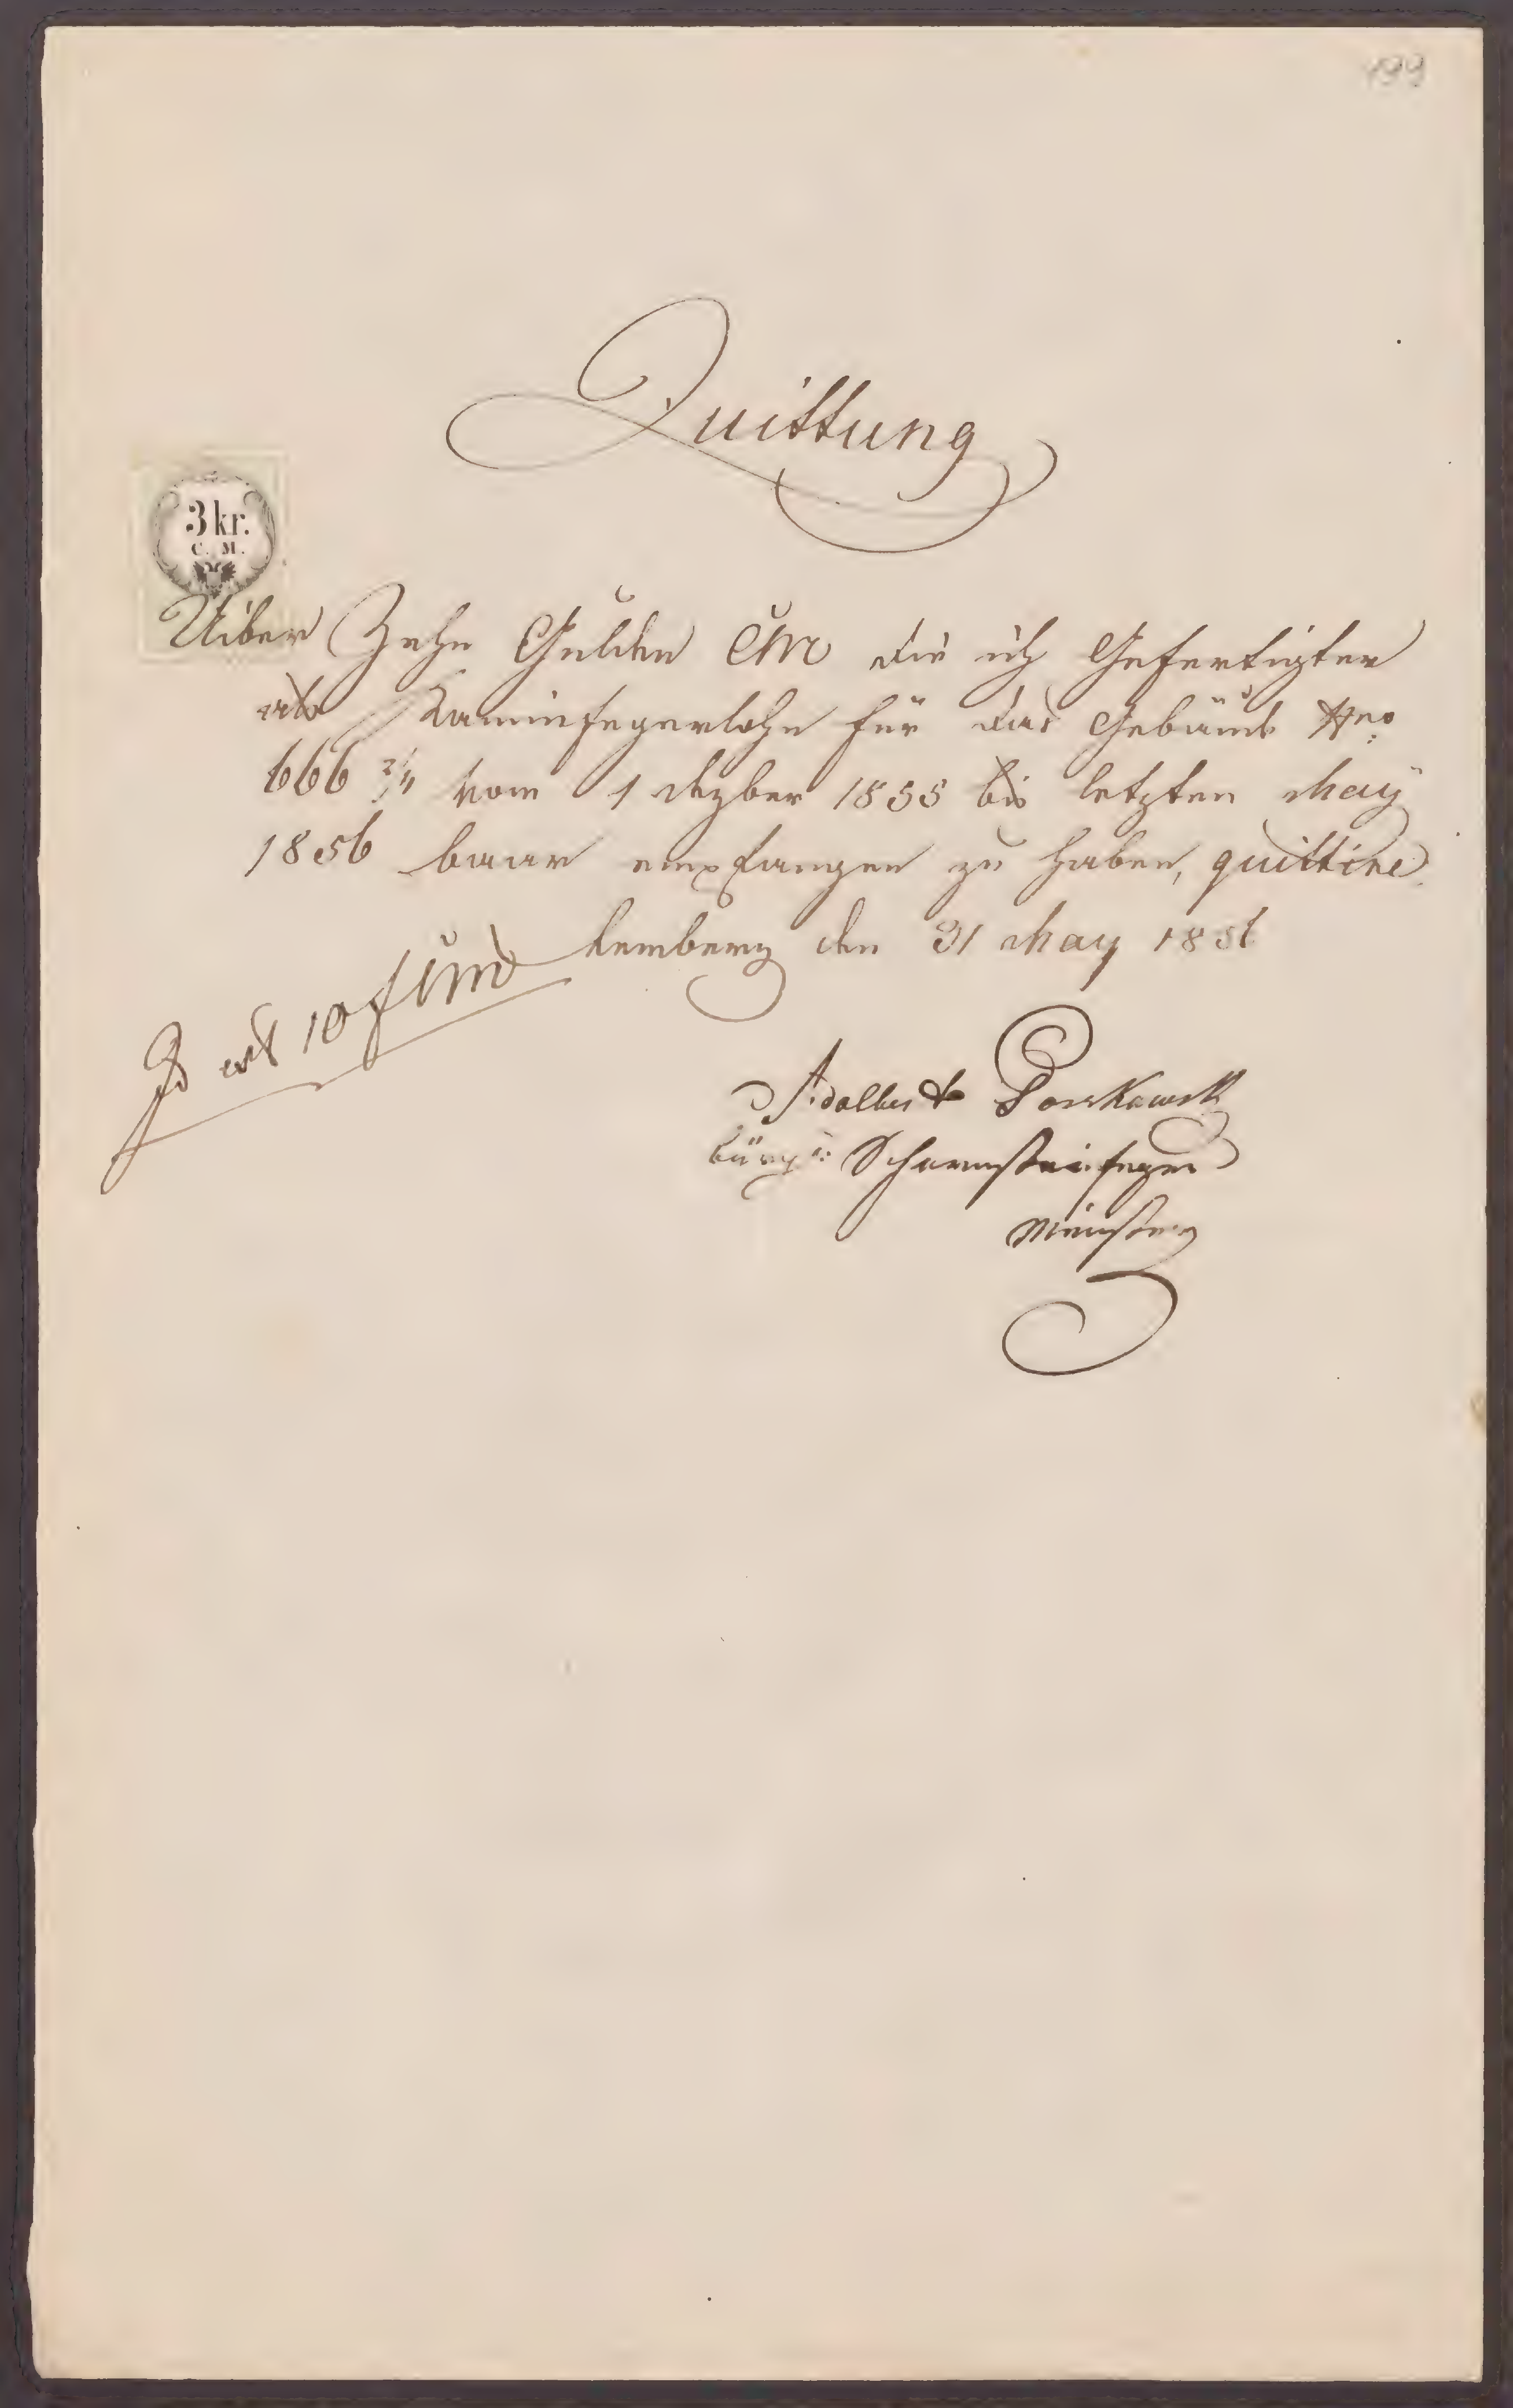 199
Quittung
3 kr.
C. M.
Uiber Zehn Gulden CM die ich Gefertigter
als Kaminfegerlohn für das Gebäude Nro
666 2/4 vom 1 Dezber 1855 bis letzten May
1856 baar empfangen zu haben, quittire.
Lemberg den 31 May 1856
Id est 10 f CM
Adalbert
bürgl: Schornsteinfeger
Meister